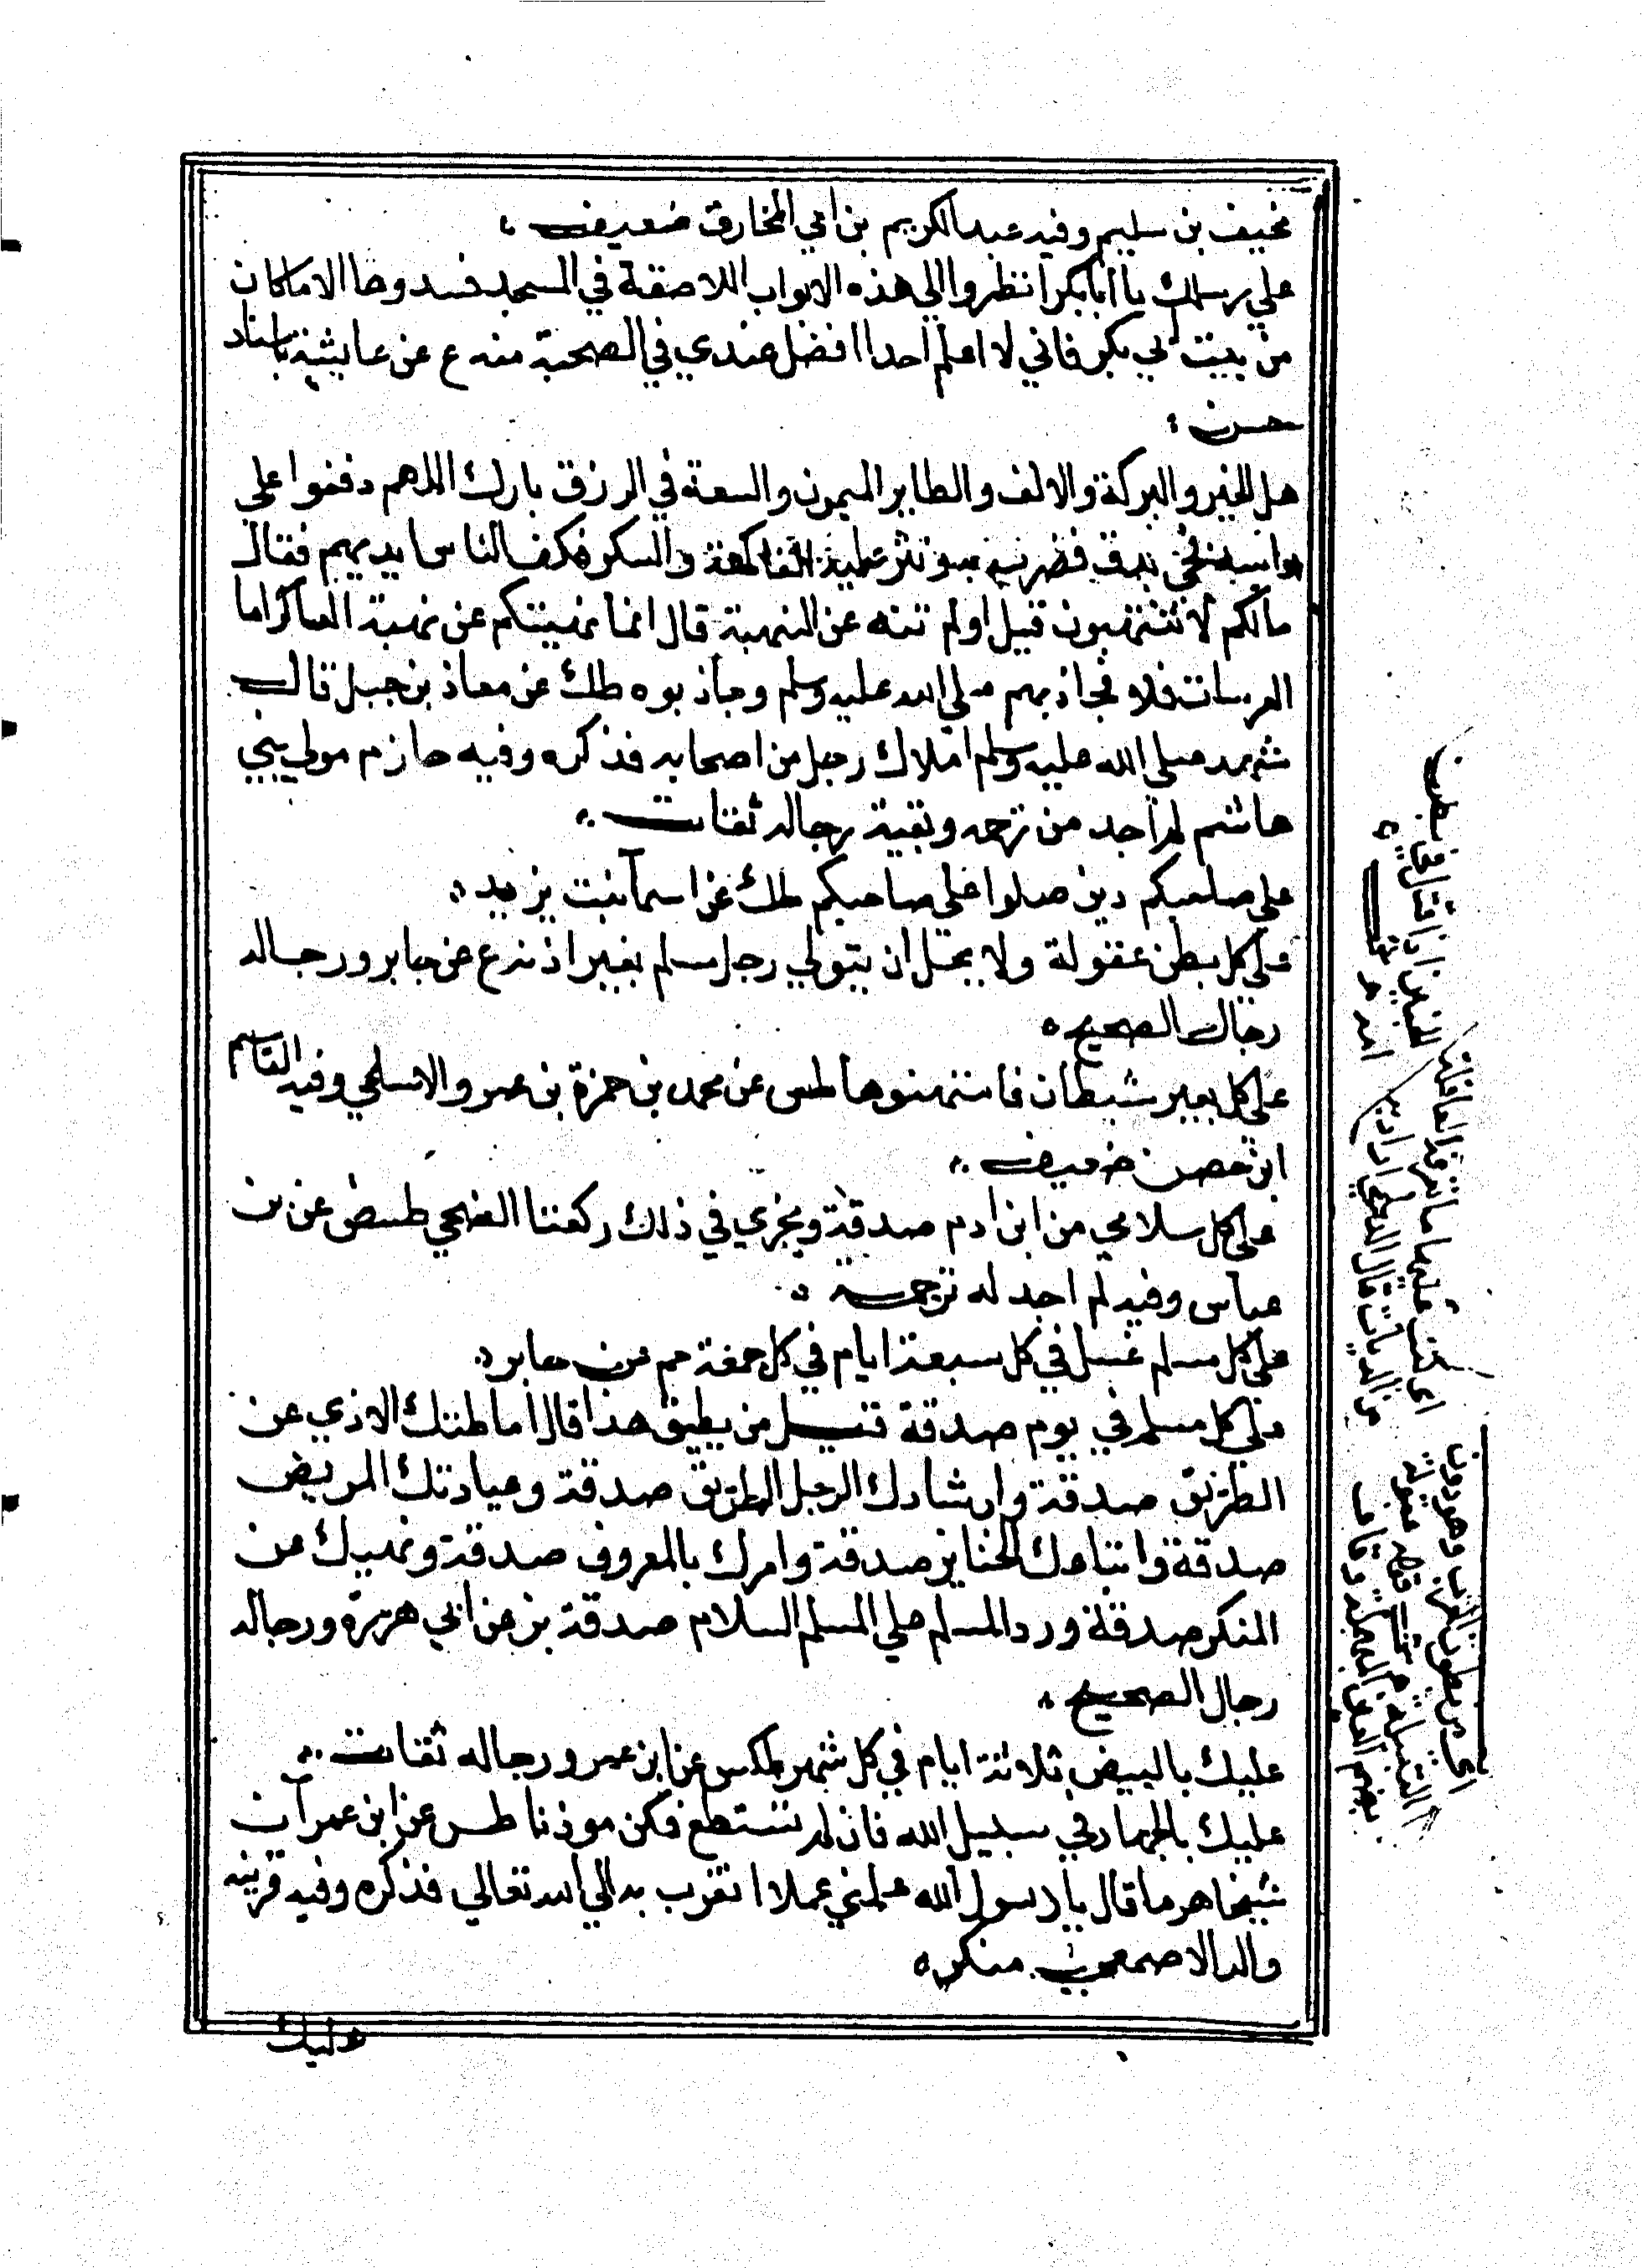 مخيف بن سليم وفيه عبد الكريم بن ابي المخارق ضعيف
علي رسلك يا ابا بكر انظروا الي هذه الابواب اللاصقة في المسجد فسدوها الا ما كان
من بيت ابي بكر فاني لا اعلم احدا افضل عندي في الصحبة منه ع عن عايشة باسناد
حسن
علي الخير والبركة والالف والطاير الميمون والسعة في الرزق بارك الله لكم دففوا علي
راسه فجي بدف فضرب به ونثر عليه الفاكهة والسكر فكف الناس ايديهم فقال
مالكم لا تنتهبون قيل اولم تنه عن النهبة قال انما نهيتكم عن نهبة العساكر اما
العرسات فلا فجاذبهم صلي الله عليه وسلم وجاذبوه طك عن معاذ بن جبل قال
شهد صلي الله عليه وسلم املاك رجل من اصحابه فذكره وفيه حازم مولي بني
هاشم لم اجد من ترجمه وبقية رجاله ثقات
علي صاحبكم دين صلوا علي صاحبكم طك عن اسما بنت يزيد
علي كل بطن عقولة ولا يحل ان يتولي رجل مسلم بغير اذنه ع عن جابر ورجاله
رجال الصحيح
علي كل بعير شيطان فامتهنوها طس عن محمد بن حمزة بن عمرو الاسلمي وفيه القاسم
ابن حصن ضعيف
علي كل سلامي من ابن ادم صدقة ويجزي في ذلك ركعتا الضحي طسض عن بن
عباس وفيه لم اجد له ترجمة
علي كل مسلم غسل في كل سبعة ايام في كل جمعة حم عن جابر
علي كل مسلم في يوم صدقة قيل من يطيق هذا قال اماطتك الاذي عن
الطريق صدقة وارشادك الرجل الطريق صدقة وعيادتك المريض
صدقة واتباعك الجنايز صدقة وامرك بالمعروف صدقة ونهيك عن
المنكر صدقة ورد المسلم علي المسلم السلام صدقة بز عن ابي هريرة ورجاله
رجال الصحيح
عليك بالبيض ثلاثة ايام في كل شهر طكس عن ابن عمر ورجاله ثقات
عليك بالجهاد في سبيل الله فان لم تستطع فكن موذنا طس عن ابن عمر ان
شيخا هرما قال يا رسول الله علمني عملا اتقرب به الي الله تعالي فذكره وفيه قرينه
والد الاصمعي منكر
عليك